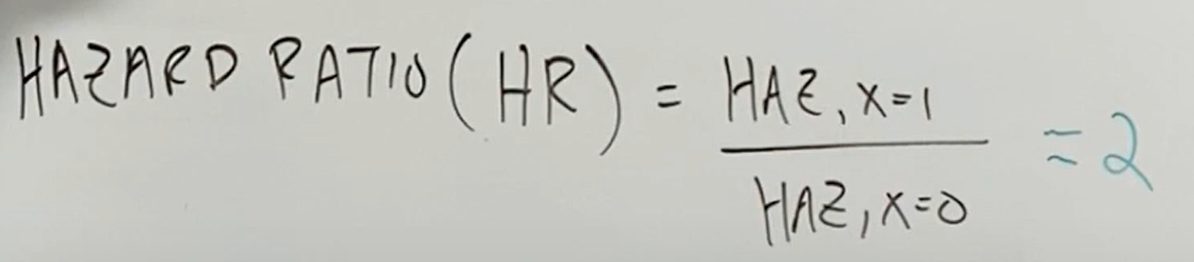 HAZARD RATIO (HR) = HAZ, X=1 / HAZ, X=0 ≈ 2